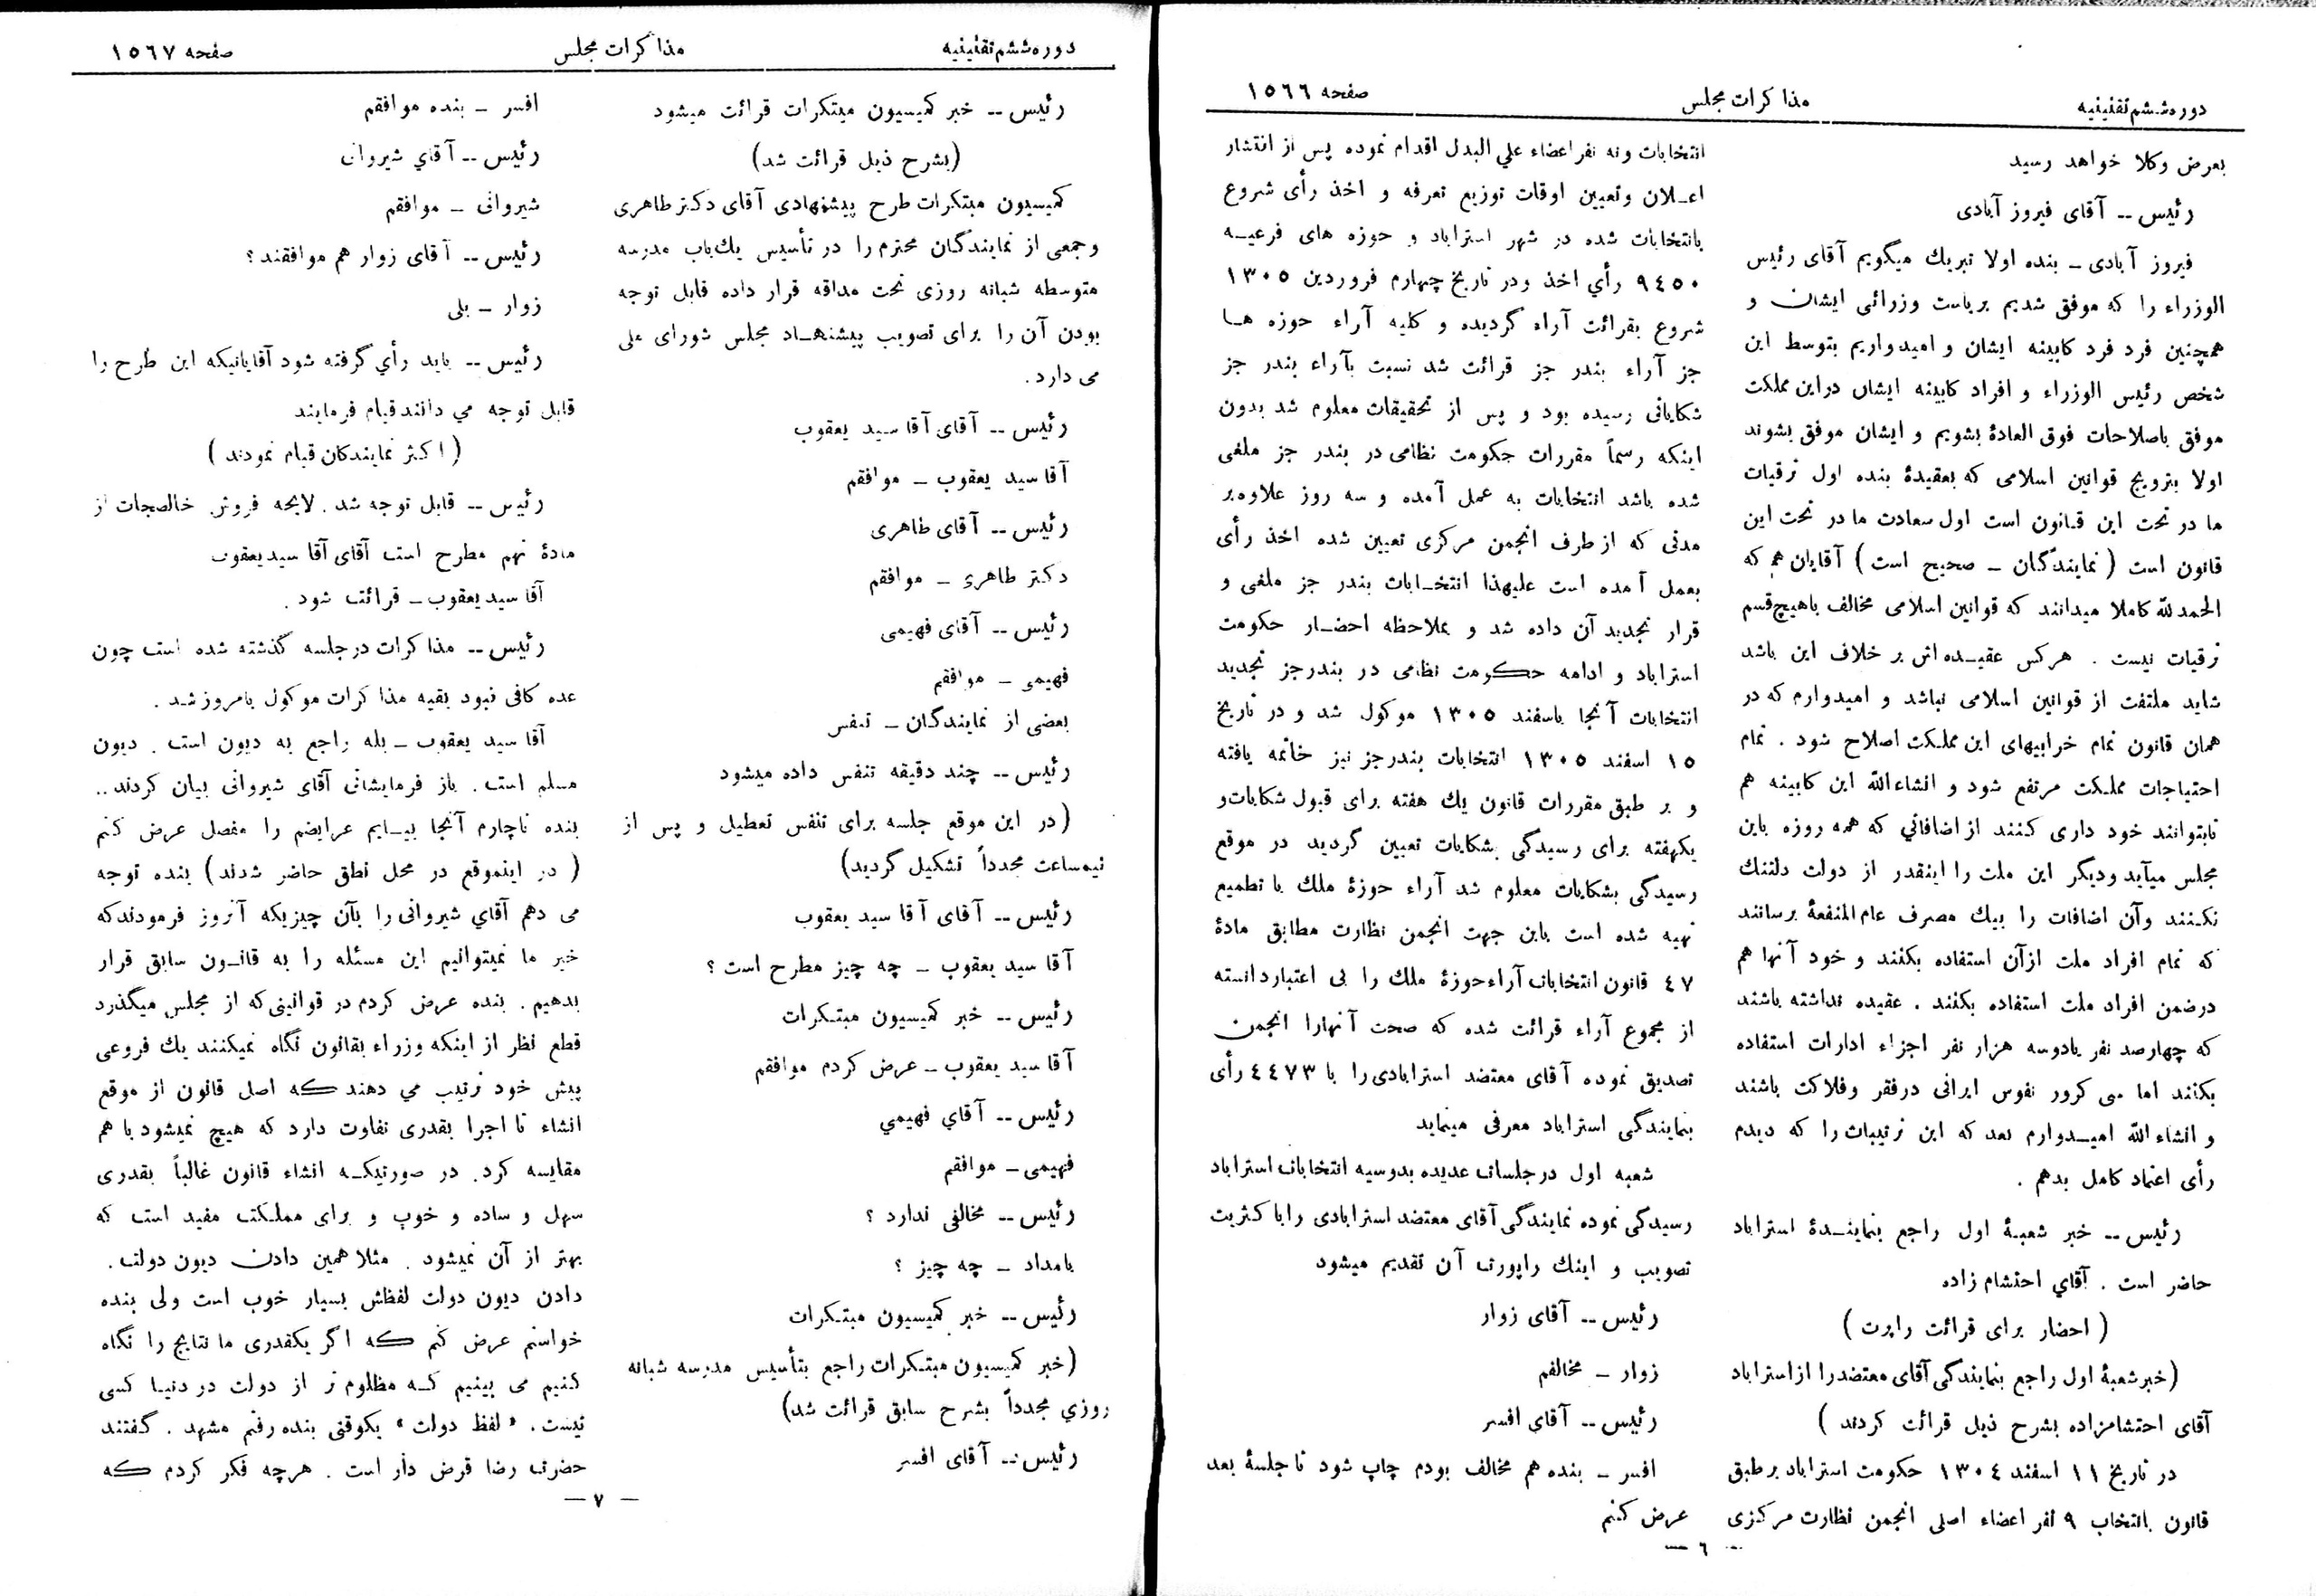 دوره‌ششم‌تقنینیه
مذاکرات مجلس
صفحه ۱۵٦٦
بعرض وکلا خواهد رسید
رئیس -- آقای فیروز آبادی
فیروز آبادی - بنده اولا تبریك میگویم آقای رئیس
الوزراء را که موفق شدیم بریاست وزرائی ایشان و
همچنین فرد فرد کابینه ایشان و امیدواریم بتوسط این
شخص رئیس الوزراء و افراد کابینه ایشان دراین مملکت
موفق باصلاحات فوق العادهٔ بشویم و ایشان موفق بشوند
اولا بترویج قوانین اسلامی که بعقیدهٔ بنده اول ترقیات
ما در تحت این قانون است اول سعادت ما در تحت این
قانون است ( نمایندگان - صحیح است ) آقایان هم که
الحمدلله کاملا میدانند که قوانین اسلامی مخالف باهیچ‌قسم
ترقیات نیست . هرکس عقیده اش بر خلاف این باشد
شاید ملتفت از قوانین اسلامی نباشد و امیدوارم که در
همان قانون تمام خرابیهای این مملکت اصلاح شود . تمام
احتیاجات مملکت مرتفع شود و انشاءالله این کابینه هم
تابتوانند خود داری کنند از اضافاتي که همه روزه باین
مجلس میآید ودیگر این ملت را اینقدر از دولت دلتنك
نکنند وآن اضافات را بیك مصرف عام‌المنفعهٔ برسانند
که تمام افراد ملت ازآن استفاده بکنند و خود آنها هم
درضمن افراد ملت استفاده بکنند . عقیده نداشته باشند
که چهارصد نفر یادوسه هزار نفر اجزاء ادارات استفاده
بکنند اما سی کرور نفوس ایرانی درفقر وفلاکت باشند
و انشاءالله امیدوارم بعد که این ترتیبات را که دیدم
رأی اعتماد کامل بدهم .
رئیس -- خبر شعبهٔ اول راجع بنمایندهٔ استراباد
حاضر است . آقاي احتشام زاده
( احضار برای قرائت راپرت )
(خبرشعبهٔ اول راجع بنمایندگی آقای معتضدرا ازاستراباد
آقای احتشامزاده بشرح ذیل قرائت کردند )
در تاریخ ۱۱ اسفند ۱۳۰٤ حکومت استراباد برطبق
قانون بانتخاب ۹ نفر اعضاء اصلی انجمن نظارت مرکزی
انتخابات ونه نفر اعضاء علي البدل اقدام نموده پس از انتشار
اعلان وتعیین اوقات توزیع تعرفه و اخذ رأی شروع
بانتخابات شده در شهر استراباد و حوزه های فرعیه
۹٤۵۰ رأي اخذ ودر تاریخ چهارم فروردین ۱۳۰۵
شروع بقرائت آراء گردیده و کلیه آراء حوزه ها
جز آراء بندر جز قرائت شد نسبت بآراء بندر جز
شکایاتی رسیده بود و پس از تحقیقات معلوم شد بدون
اینکه رسماً مقررات حکومت نظامی در بندر جز ملغی
شده باشد انتخابات به عمل آمده و سه روز علاوه‌بر
مدتی که از طرف انجمن مرکزی تعیین شده اخذ رأی
بعمل آمده است علیهذا انتخابات بندر جز ملغی و
قرار تجدید آن داده شد و بملاحظه احضار حکومت
استراباد و ادامه حکومت نظامی در بندرجز تجدید
انتخابات آنجا باسفند ۱۳۰۵ موکول شد و در تاریخ
۱۵ اسفند ۱۳۰۵ انتخابات بندرجز نیز خاتمه یافته
و بر طبق مقررات قانون یك هفته برای قبول شکایات‌و
یکهفته برای رسیدگی بشکایات تعیین گردید در موقع
رسیدگی بشکایات معلوم شد آراء حوزهٔ ملك با تطمیع
تهیه شده است باین جهت انجمن نظارت مطابق مادهٔ
٤۷ قانون انتخابات آراءحوزهٔ ملك را بی اعتباردانسته
از مجموع آراء قرائت شده که صحت آنهارا انجمن
تصدیق نموده آقای معتضد استرابادی را با ٤٤۷۳ رأی
بنمایندگی استراباد معرفی مینماید
شعبه اول درجلسات عدیده بدوسیه انتخابات استراباد
رسیدگی نموده نمایندگی آقای معتضد استرابادی رابا کثریت
تصویب و اینك راپورت آن تقدیم میشود
رئیس -- آقای زوار
زوار - مخالفم
رئیس -- آقای افسر
افسر - بنده هم مخالف بودم چاپ شود تا جلسهٔ بعد
عرض کنم
- ٦ -
دوره‌ششم‌تقنینیه
مذاکرات مجلس
صفحه ۱۵٦۷
رئیس -- خبر کمیسیون مبتکرات قرائت میشود
(بشرح ذیل قرائت شد)
کمیسیون مبتکرات طرح پیشنهادی آقای دکتر طاهری
وجمعی از نمایندگان محترم را در تأسیس یك‌باب مدرسه
متوسطه شبانه روزی تحت مداقه قرار داده قابل توجه
بودن آن را برای تصویب پیشنهاد مجلس شورای ملی
می دارد.
رئیس -- آقای آقا سید یعقوب
آقا سید یعقوب - موافقم
رئیس -- آقای طاهری
دکتر طاهری - موافقم
رئیس -- آقای فهیمی
فهیمی - موافقم
بعضی از نمایندگان - تنفس
رئیس -- چند دقیقه تنفس داده میشود
(در این موقع جلسه برای تنفس تعطیل و پس از
نیمساعت مجدداً تشکیل گردید)
رئیس -- آقای آقا سید یعقوب
آقا سید یعقوب - چه چیز مطرح است ؟
رئیس -- خبر کمیسیون مبتکرات
آقا سید یعقوب - عرض کردم موافقم
رئیس -- آقاي فهیمي
فهیمی - موافقم
رئیس -- مخالفی ندارد ؟
بامداد - چه چیز ؟
رئیس -- خبر کمیسیون مبتکرات
(خبر کمیسیون مبتکرات راجع بتأسیس مدرسه شبانه
روزي مجدداً بشرح سابق قرائت شد)
رئیس -- آقای افسر
افسر - بنده موافقم
رئیس -- آقاي شیروانی
شیروانی - موافقم
رئیس -- آقای زوار هم موافقند ؟
زوار - بلی
رئیس -- باید رأي گرفته شود آقایانیکه این طرح را
قابل توجه مي دانند قیام فرمایند
( اکثر نمایندگان قیام نمودند )
رئیس -- قابل توجه شد . لایحه فروش خالصجات از
مادهٔ نهم مطرح است آقای آقا سیدیعقوب
آقا سیدیعقوب - قرائت شود .
رئیس -- مذاکرات درجلسه گذشته شده است چون
عده کافی نبود بقیه مذاکرات موکول بامروز شد .
آقا سید یعقوب - بله راجع به دیون است . دیون
مسلم است . باز فرمایشاتی آقای شیروانی بیان کردند ..
بنده ناچارم آنجا بیایم عرایضم را مفصل عرض کنم
( در اینموقع در محل نطق حاضر شدند ) بنده توجه
می دهم آقاي شیروانی را بآن چیزیکه آنروز فرمودندکه
خیر ما نمیتوانیم این مسئله را به قانون سابق قرار
بدهیم . بنده عرض کردم در قوانینی که از مجلس میگذرد
قطع نظر از اینکه وزراء بقانون نگاه نمیکنند یك فروعی
پیش خود ترتیب مي دهند که اصل قانون از موقع
انشاء تا اجرا بقدری تفاوت دارد که هیچ نمیشود با هم
مقایسه کرد . در صورتیکه انشاء قانون غالباً بقدری
سهل و ساده و خوب و برای مملکت مفید است که
بهتر از آن نمیشود . مثلا همین دادن دیون دولت .
دادن دیون دولت لفظش بسیار خوب است ولی بنده
خواستم عرض کنم که اگر یکقدری ما نتایج را نگاه
کنیم می بینیم که مظلوم تر از دولت در دنیا کسی
نیست . « لفظ دولت » یکوقتی بنده رفتم مشهد . گفتند
حضرت رضا قرض دار است . هرچه فکر کردم که
- ۷ -